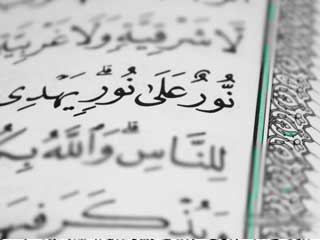 لَّا شَرْقِيَّةٍ وَلَا غَرْبِيَّةٍ
نُّورٌ عَلَىٰ نُورٍ ۗ يَهْدِى
لِلنَّاسِ ۗ وَٱللَّهُ بِكُ
وَيُذْكَرَ فِيهَا